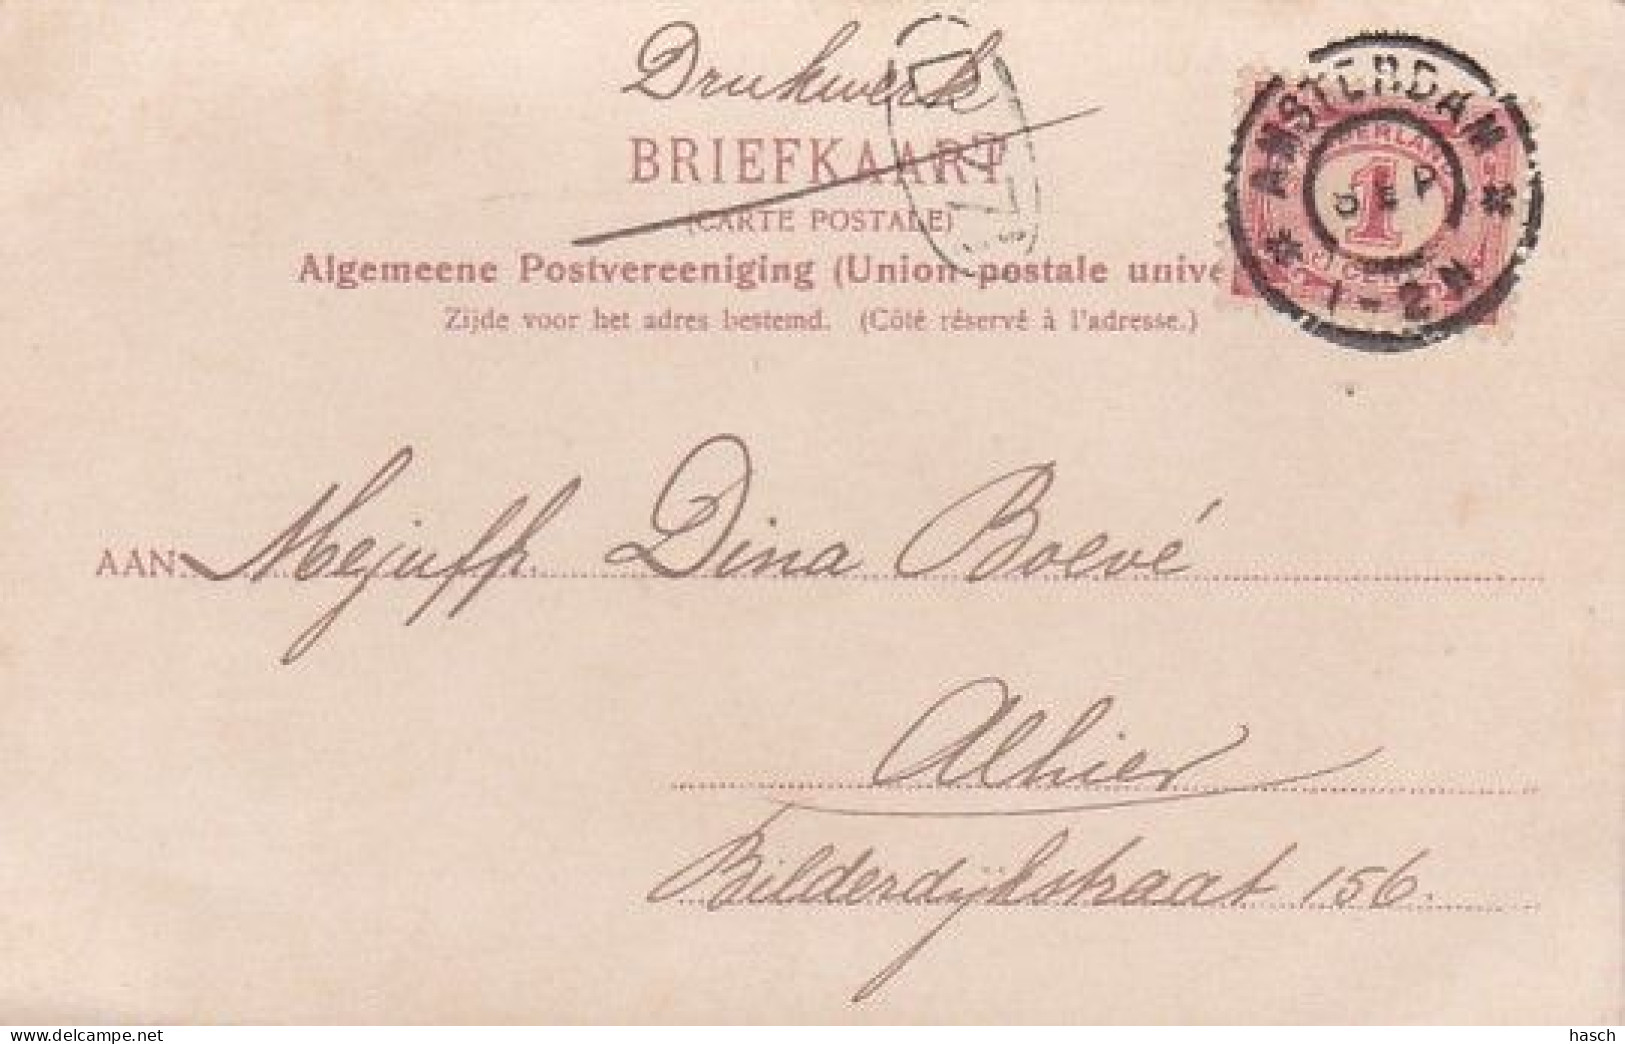 Drukwerk
BRIEFKAART
(CARTE POSTALE)
Algemeene Postvereeniging (Union postale unive
Zijde voor het adres bestemd. (Côté réservé à l'adresse.)
AMSTERDAM
1
1-2N
AAN Mejuffr. Dina Boevé
Alhier
Bilderdijkstraat 156.
hasch